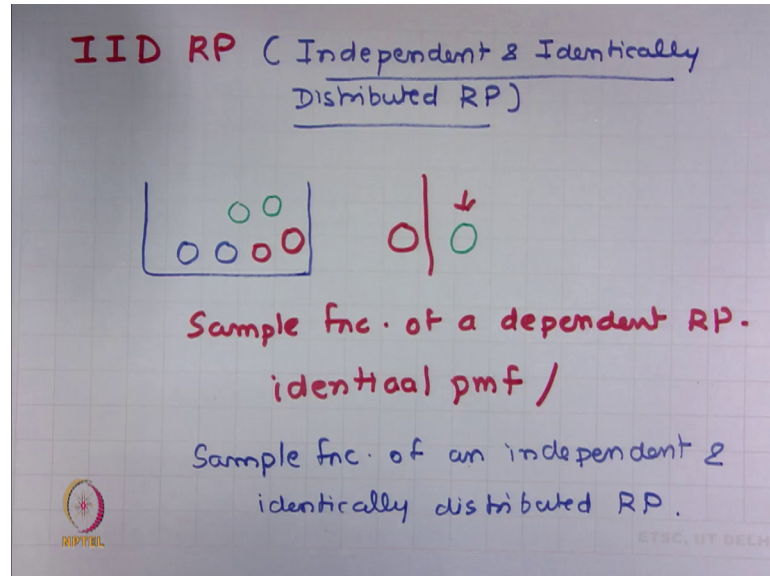 IID RP ( Independent & Identically
Distributed RP)
Sample fnc. of a dependent RP.
identiaal pmf /
Sample fnc. of an independent &
identically distributed RP.
NPTEL
ETSC, IIT DELH